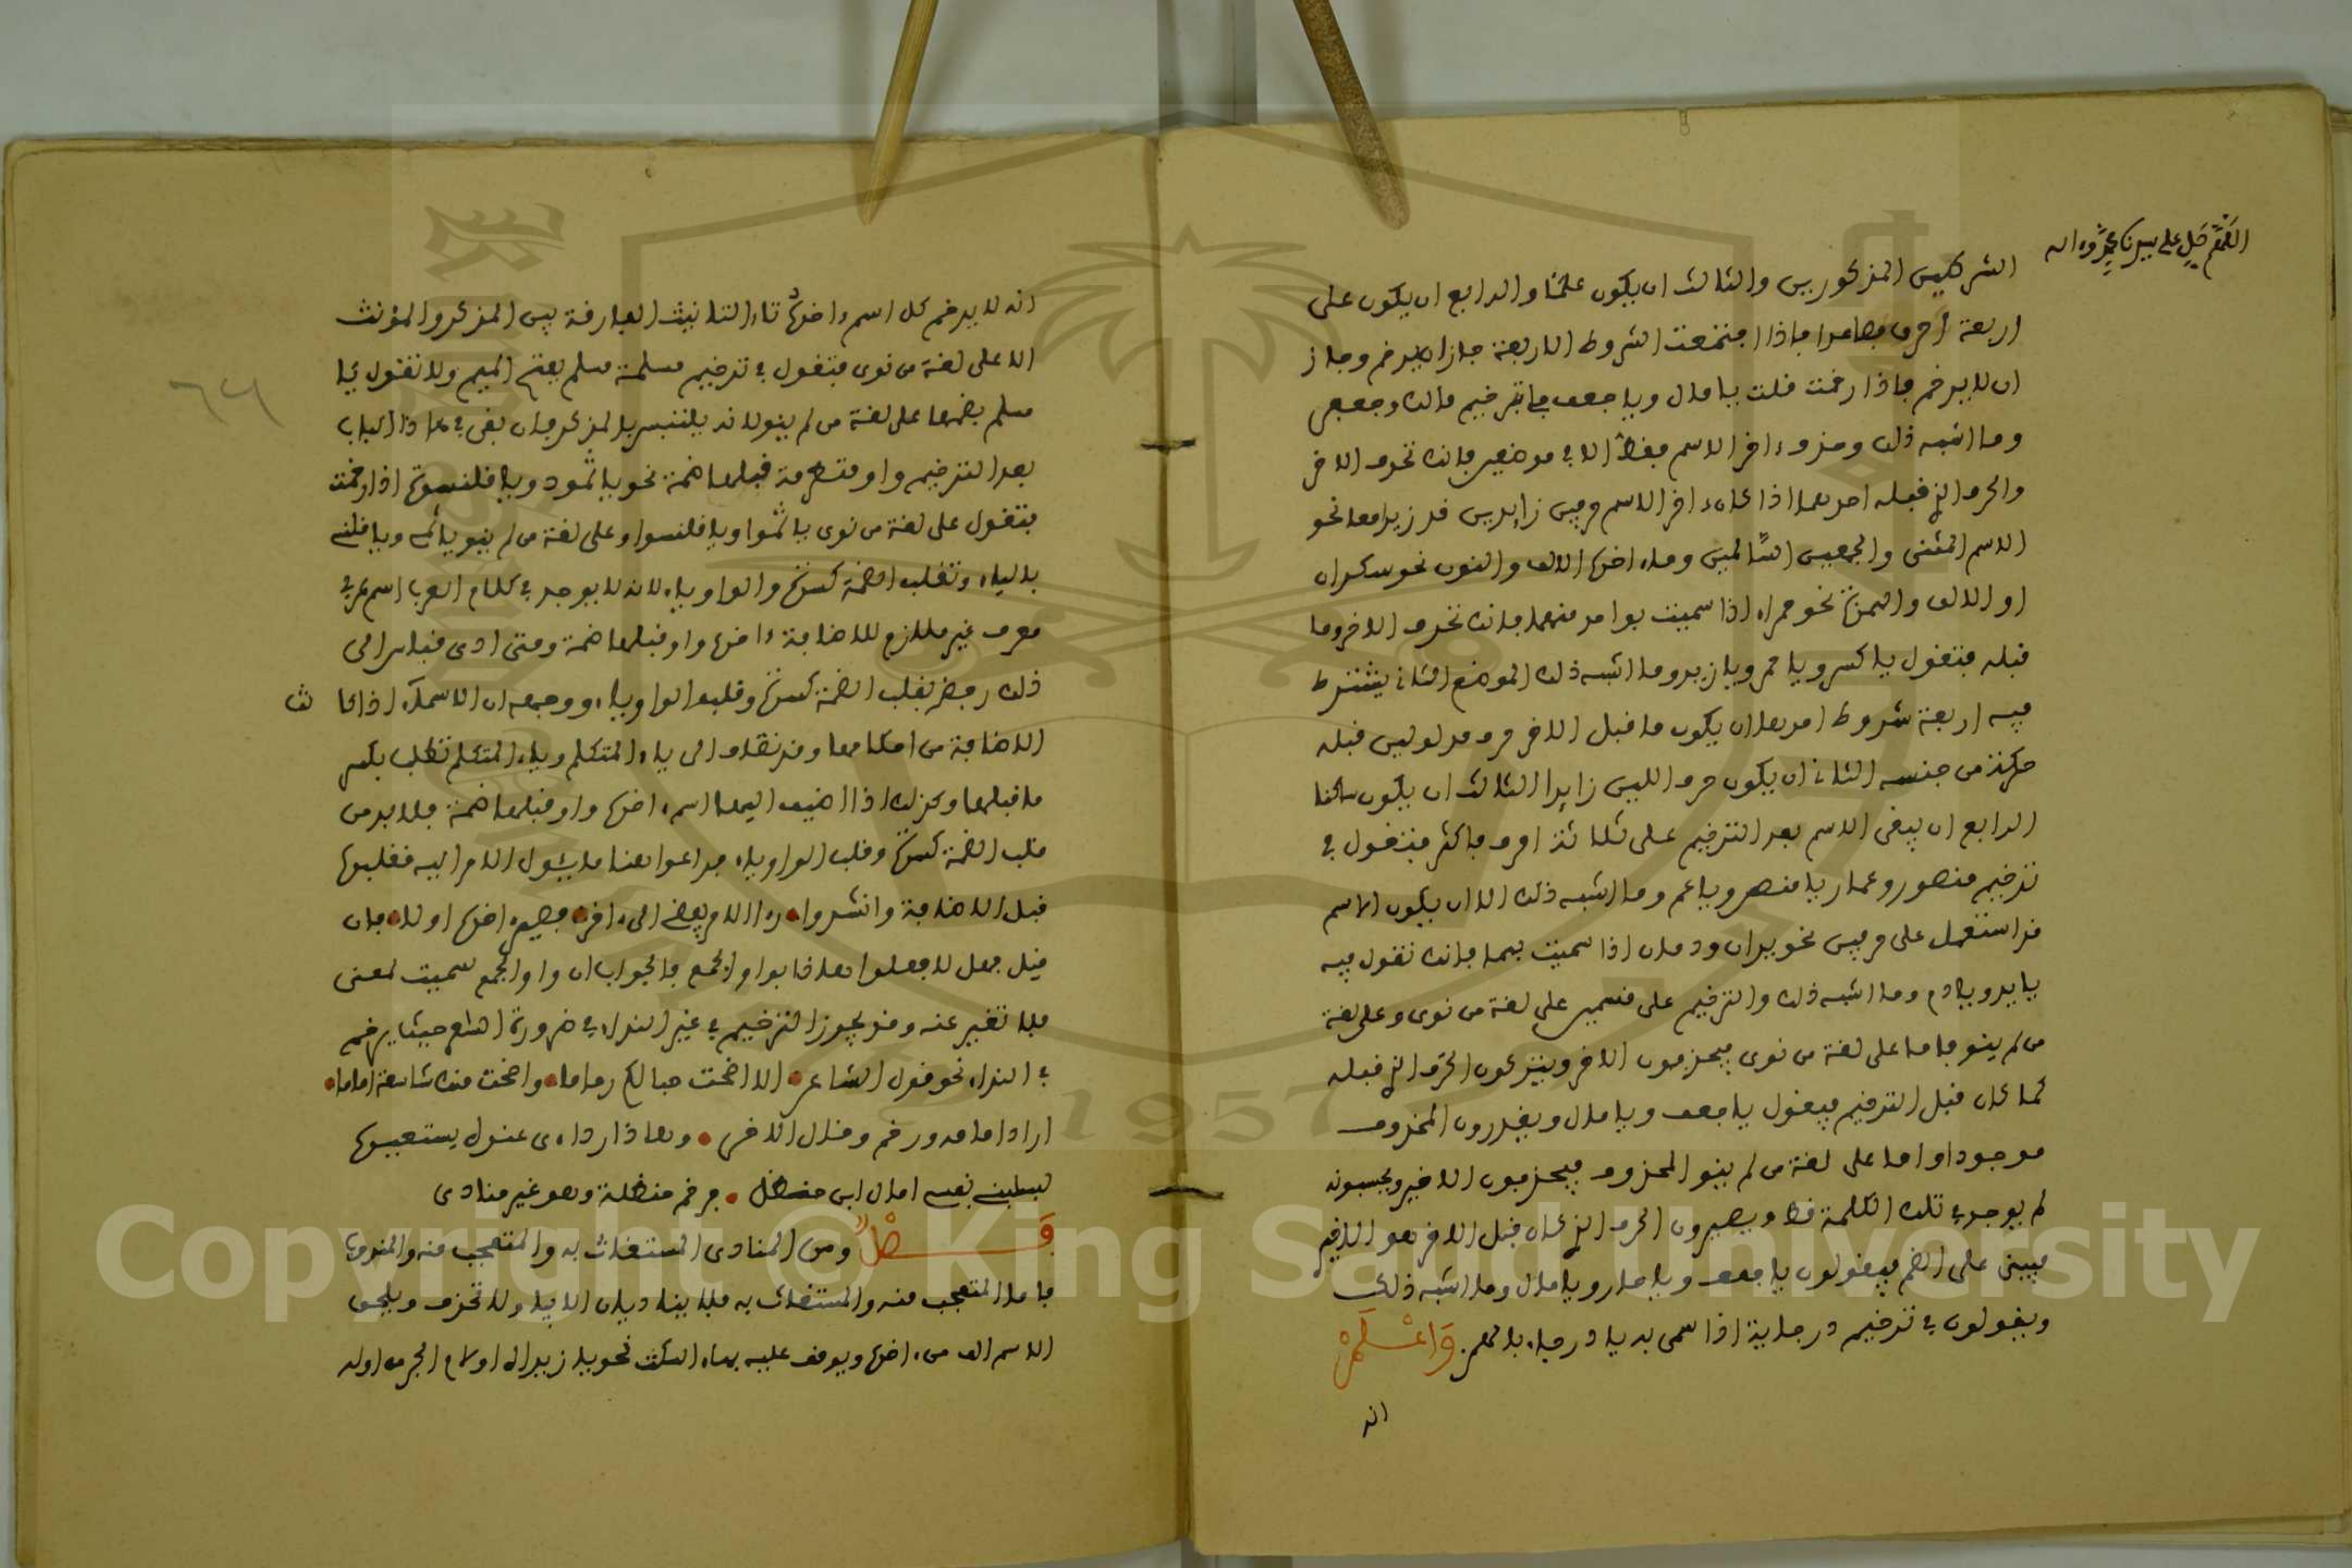 اللهم صل على سيدنا محمد واله
الشرطين المذكورين والثالث ان يكون علما والرابع ان يكون على
اربعة احرف فصاعدا فاذا اجتمعت الشروط الاربعة جاز ان يرخم وجاز
ان لا يرخم فاذا رخمت قلت يا مال ويا جعف في ترخيم مالك وجعفر
وما اشبه ذلك وحذف ءاخر الاسم فقط الا في موضعين فانك تحذف الاخر
والحرف الذي قبله احدهما اذا كان ءاخر الاسم حرفين زايدين قد زيدا معا نحو
الاسم المثنى والجمعين السالمين وما ءاخره الالف والنون نحو سكران
او الالف والهمزة نحو حمراء اذا سميت بواحد منهما فانك تحذف الاخر وما
قبله فتقول يا سكر ويا حمر ويا زيد وما اشبه ذلك الموضع الثاني يشترط
فيه اربعة شروط احدها ان يكون ما قبل الاخر حرف مد ولين قبله
حركة من جنسه الثاني ان يكون حرف اللين زايدا الثالث ان يكون ساكنا
الرابع ان يبقى الاسم بعد الترخيم على ثلاثة احرف فاكثر فتقول في
ترخيم منصور وعمار يا منص ويا عم وما اشبه ذلك الا ان يكون الاسم
قد استعمل على حرفين نحو يدان ودمان اذا سميت بهما فانك تقول فيه
يا يد ويا دم وما اشبه ذلك والترخيم على قسمين على لغة من نوى وعلى لغة
من لم ينو فاما على لغة من نوى فيحذفون الاخر ويتركون الحرف الذي قبله
كما كان قبل الترخيم فيقول يا جعف ويا مال ويقدرون المحذوف
موجودا واما على لغة من لم ينو المحذوف فيحذفون الاخير ويحسبونه
لم يوجد في تلك الكلمة قط ويصيرون الحرف الذي كان قبل الاخر هو الاخير
فيبنى على الضم فيقولون يا جعف ويا حار ويا مال وما اشبه ذلك
ويقولون في ترخيم درحاية اذا سمي به يا درحاء بالهمز. واعلم
انه
انه لا يرخم كل اسم ءاخره تاء التانيث الفارقة بين المذكر والمؤنث
الا على لغة من نوى فتقول في ترخيم مسلمة مسلم بفتح الميم ولا تقول يا
مسلم بضمها على لغة من لم ينو لانه يلتبس بالمذكر فان بقي في هاذا الباب
بعد الترخيم واو متطرفة قبلها ضمة نحو يا ثمود ويا قلنسوة اذا رخمت
فتقول على لغة من نوى يا ثمو ويا قلنسو وعلى لغة من لم ينو يا ثمي ويا قلنسي
بالياء وتقلب الضمة كسرة والواو ياء لانه لا يوجد في كلام العرب اسم عربي
معرب غير ملازم للاضافة ءاخره واو قبلها ضمة ومتى ادى قياس الى
ذلك رفض بقلب الضمة كسرة وقلب الواو ياء ووجهه ان الاسماء اذا كانت
الاضافة من احكامها وقد تضاف الى ياء المتكلم وياء المتكلم تطلب بكسر
ما قبلها وكذلك اذا اضيف اليها اسم ءاخره واو قبلها ضمة فلا بد من
قلب الضمة كسرة وقلب الواو ياء فراعوا هنا ما يئول الامر اليه فقلبوها
قبل الاضافة وانشدوا راا الامر يفضي الى ءاخر فصير ءاخره اولا فان
قيل فهل لا فعلوا هاذا بواو الجمع فالجواب ان واو الجمع سميت لمعنى
فلا تغير عنه وقد يجوز الترخيم في غير النداء في ضرورة الشاعر حيث يرخم
في النداء نحو قول الشاعر الا اضحت حبالكم رماما واضحت منك شاسعة اماما
اراد امامة ورخم وقال الاخر وهاذا رداءي عنده يستعيره
ليسلبني نفسي امال ابن حنظل فرخم حنظلة وهو غير منادى
فصل ومن المنادى المستغاث به والمتعجب منه والمندوب
فاما المتعجب منه والمستغاث به فلا يناديان الا بيا ولا تحذف ويلحق
الاسم الف من ءاخره ويوقف عليه بهاء السكت نحو يا زيداه او لام الجر من اوله